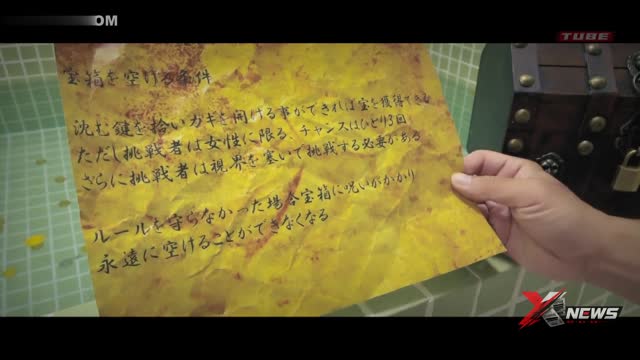 OM
TUBE
宝箱を空ける条件
沈む鍵を拾いカギを開ける事ができれば宝を獲得できる
ただし挑戦者は女性に限る、チャンスはひとり3回
さらに挑戦者は視界を塞いで挑戦する必要がある
ルールを守らなかった場合宝箱に呪いがかかり
永遠に空けることができなくなる
NEWS